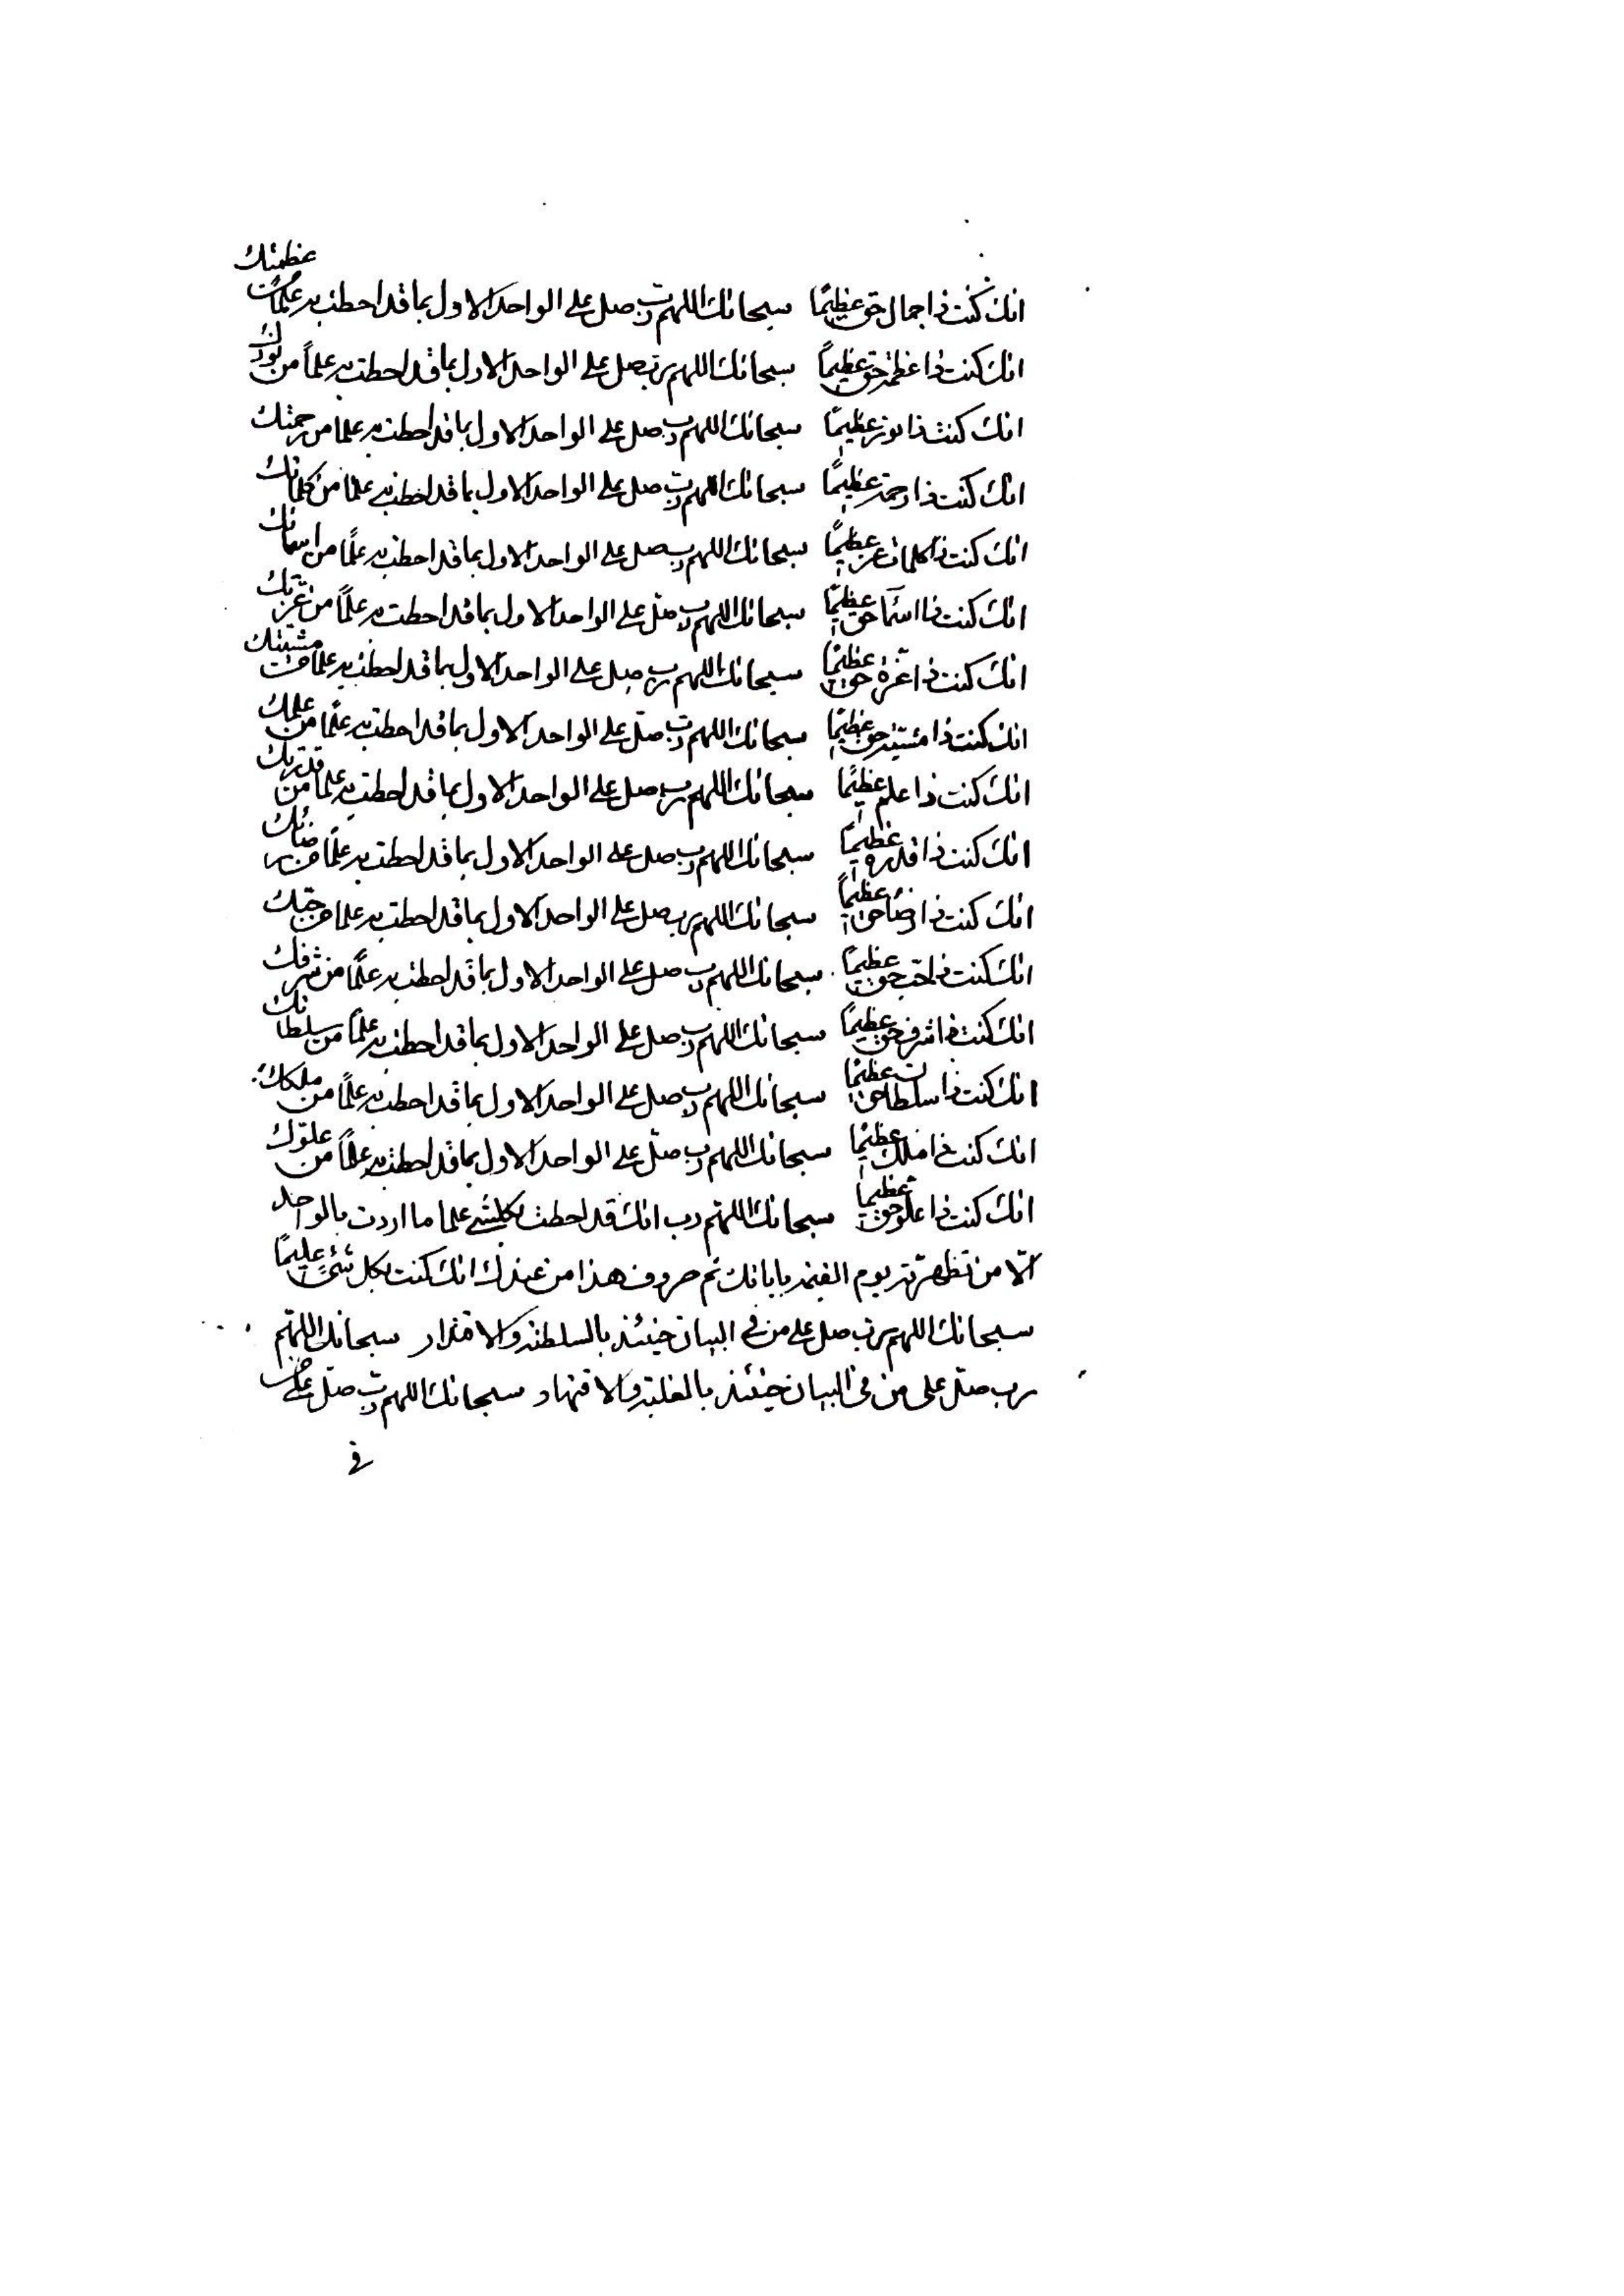 انك كنت ذا جمال حق عظيمًا سبحانك اللهم رب صل على الواحد الاول بما قد احطت به علمًا من عظمتك
انك كنت ذا عظمة حق عظيمًا سبحانك اللهم رب صل على الواحد الاول بما قد احطت به علماً من نورك
انك كنت ذا نور عظيمًا سبحانك اللهم رب صل على الواحد الاول بما قد احطت به علما من رحمتك
انك كنت ذا رحمة عظيمًا سبحانك اللهم رب صل على الواحد الاول بما قد احطت به علما من كلماتك
انك كنت ذا كلمات عظيمًا سبحانك اللهم رب صل على الواحد الاول بما قد احطت به علمًا من اسمائك
انك كنت ذا اسمآء حق عظيمًا سبحانك اللهم رب صلّ على الواحد الاول بما قد احطت به علماً من عزتك
انك كنت ذا عزة حق عظيمًا سبحانك اللهم رب صل على الواحد الاول بما قد احطت به علما من مشيتك
انك كنت ذا مشيّة حق عظيمًا سبحانك اللهم رب صلّ على الواحد الاول بما قد احطت به علمًا من علمك
انك كنت ذا علم عظيمًا سبحانك اللهم رب صل على الواحد الاول بما قد احطت به علما من قدرتك
انك كنت ذا قدرة عظيمًا سبحانك اللهم رب صل على الواحد الاول بما قد احطت به علمًا من رضائك
انك كنت ذا رضاء حق عظيماً سبحانك اللهم رب صل على الواحد الاول بما قد احطت به علما من حبك
انك كنت ذا حب حق عظيمًا سبحانك اللهم رب صل على الواحد الاول بما قد احطت به علمًا من شرفك
انك كنت ذا شرف حق عظيمًا سبحانك اللهم رب صل على الواحد الاول بما قد احطت به علمًا من سلطانك
انك كنت ذا سلطان حق عظيمًا سبحانك اللهم رب صل على الواحد الاول بما قد احطت به علمًا من ملكك
انك كنت ذا ملك عظيمًا سبحانك اللهم رب صلّ على الواحد الاول بما قد احطت به علمًا من علوّك
انك كنت ذا علو حق عظيما سبحانك اللهم رب انك قد احطت بكلشئ علما ما اردت بالواحد
الّا من تظهرنّه يوم القيمة باياتك ثم حروف هذا من عندك انك كنت بكل شئ عليمًا
سبحانك اللهم رب صل على من في البيان حينئذ بالسلطنة والاقتدار سبحانك اللهم
رب صلّ على من فى البيان حينئذ بالغلبة والاقتهار سبحانك اللهم رب صلّ على من
في